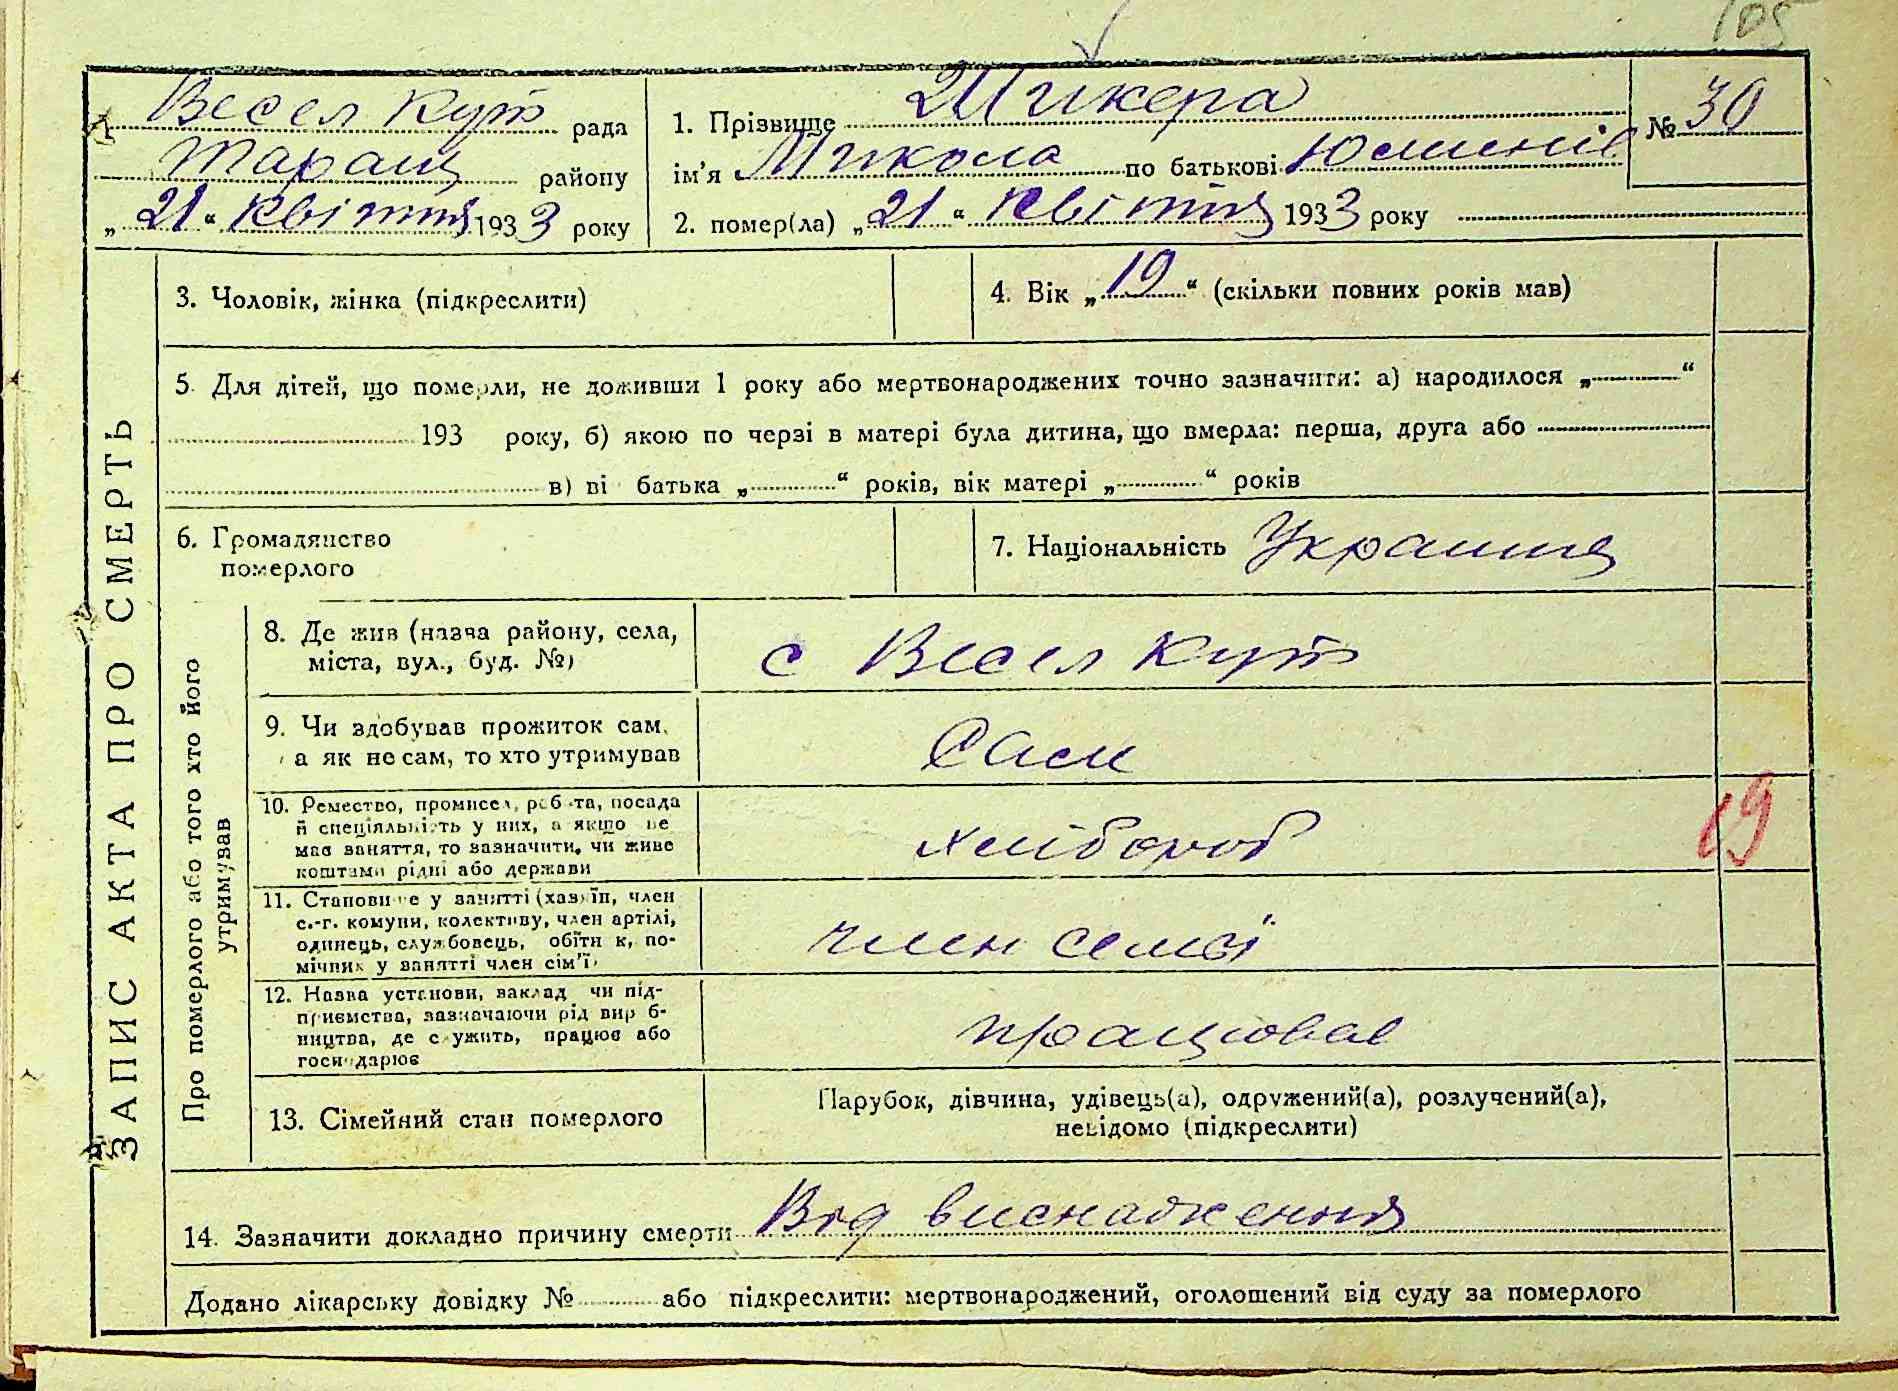 105
Весел Кут рада
Таращ району
„21“ Квітня 1933 року
1. Прізвище Шикера
ім'я Микола по батькові
№ 30
2. помер(ла) „21“ Квітня 1933 року
ЗАПИС АКТА ПРО СМЕРТЬ
3. Чоловік, жінка (підкреслити)
4. Вік „19“ (скільки повних років мав)
5. Для дітей, що померли, не доживши 1 року або мертвонароджених точно зазначити: а) народилося „ “
193 року, б) якою по черзі в матері була дитина, що вмерла: перша, друга або
в) ві батька „ “ років, вік матері „ “ років
6. Громадянство
померлого
7. Національність Украинця
Про померлого або того хто його
утримував
8. Де жив (назва району, села,
міста, вул., буд. №)
с Весел Кут
9. Чи здобував прожиток сам,
а як не сам, то хто утримував
Сам
10. Ремество, промисел, робота, посада
й спеціяльність у них, а якщо не
має заняття, то зазначити, чи живе
коштами рідні або держави
хлібороб
19
11. Становище у занятті (хазяїн, член
с.-г. комуни, колективу, член артілі,
одинець, службовець, обітник, по-
мічник у занятті член сім'ї)
член семї
12. Назва установи, заклад чи під-
приємства, зазначаючи рід вироб-
ництва, де служить, працює або
господарює
працював
13. Сімейний стан померлого
Парубок, дівчина, удівець(а), одружений(а), розлучений(а),
невідомо (підкреслити)
14. Зазначити докладно причину смерти Від виснаження
Додано лікарську довідку № або підкреслити: мертвонароджений, оголошений від суду за померлого